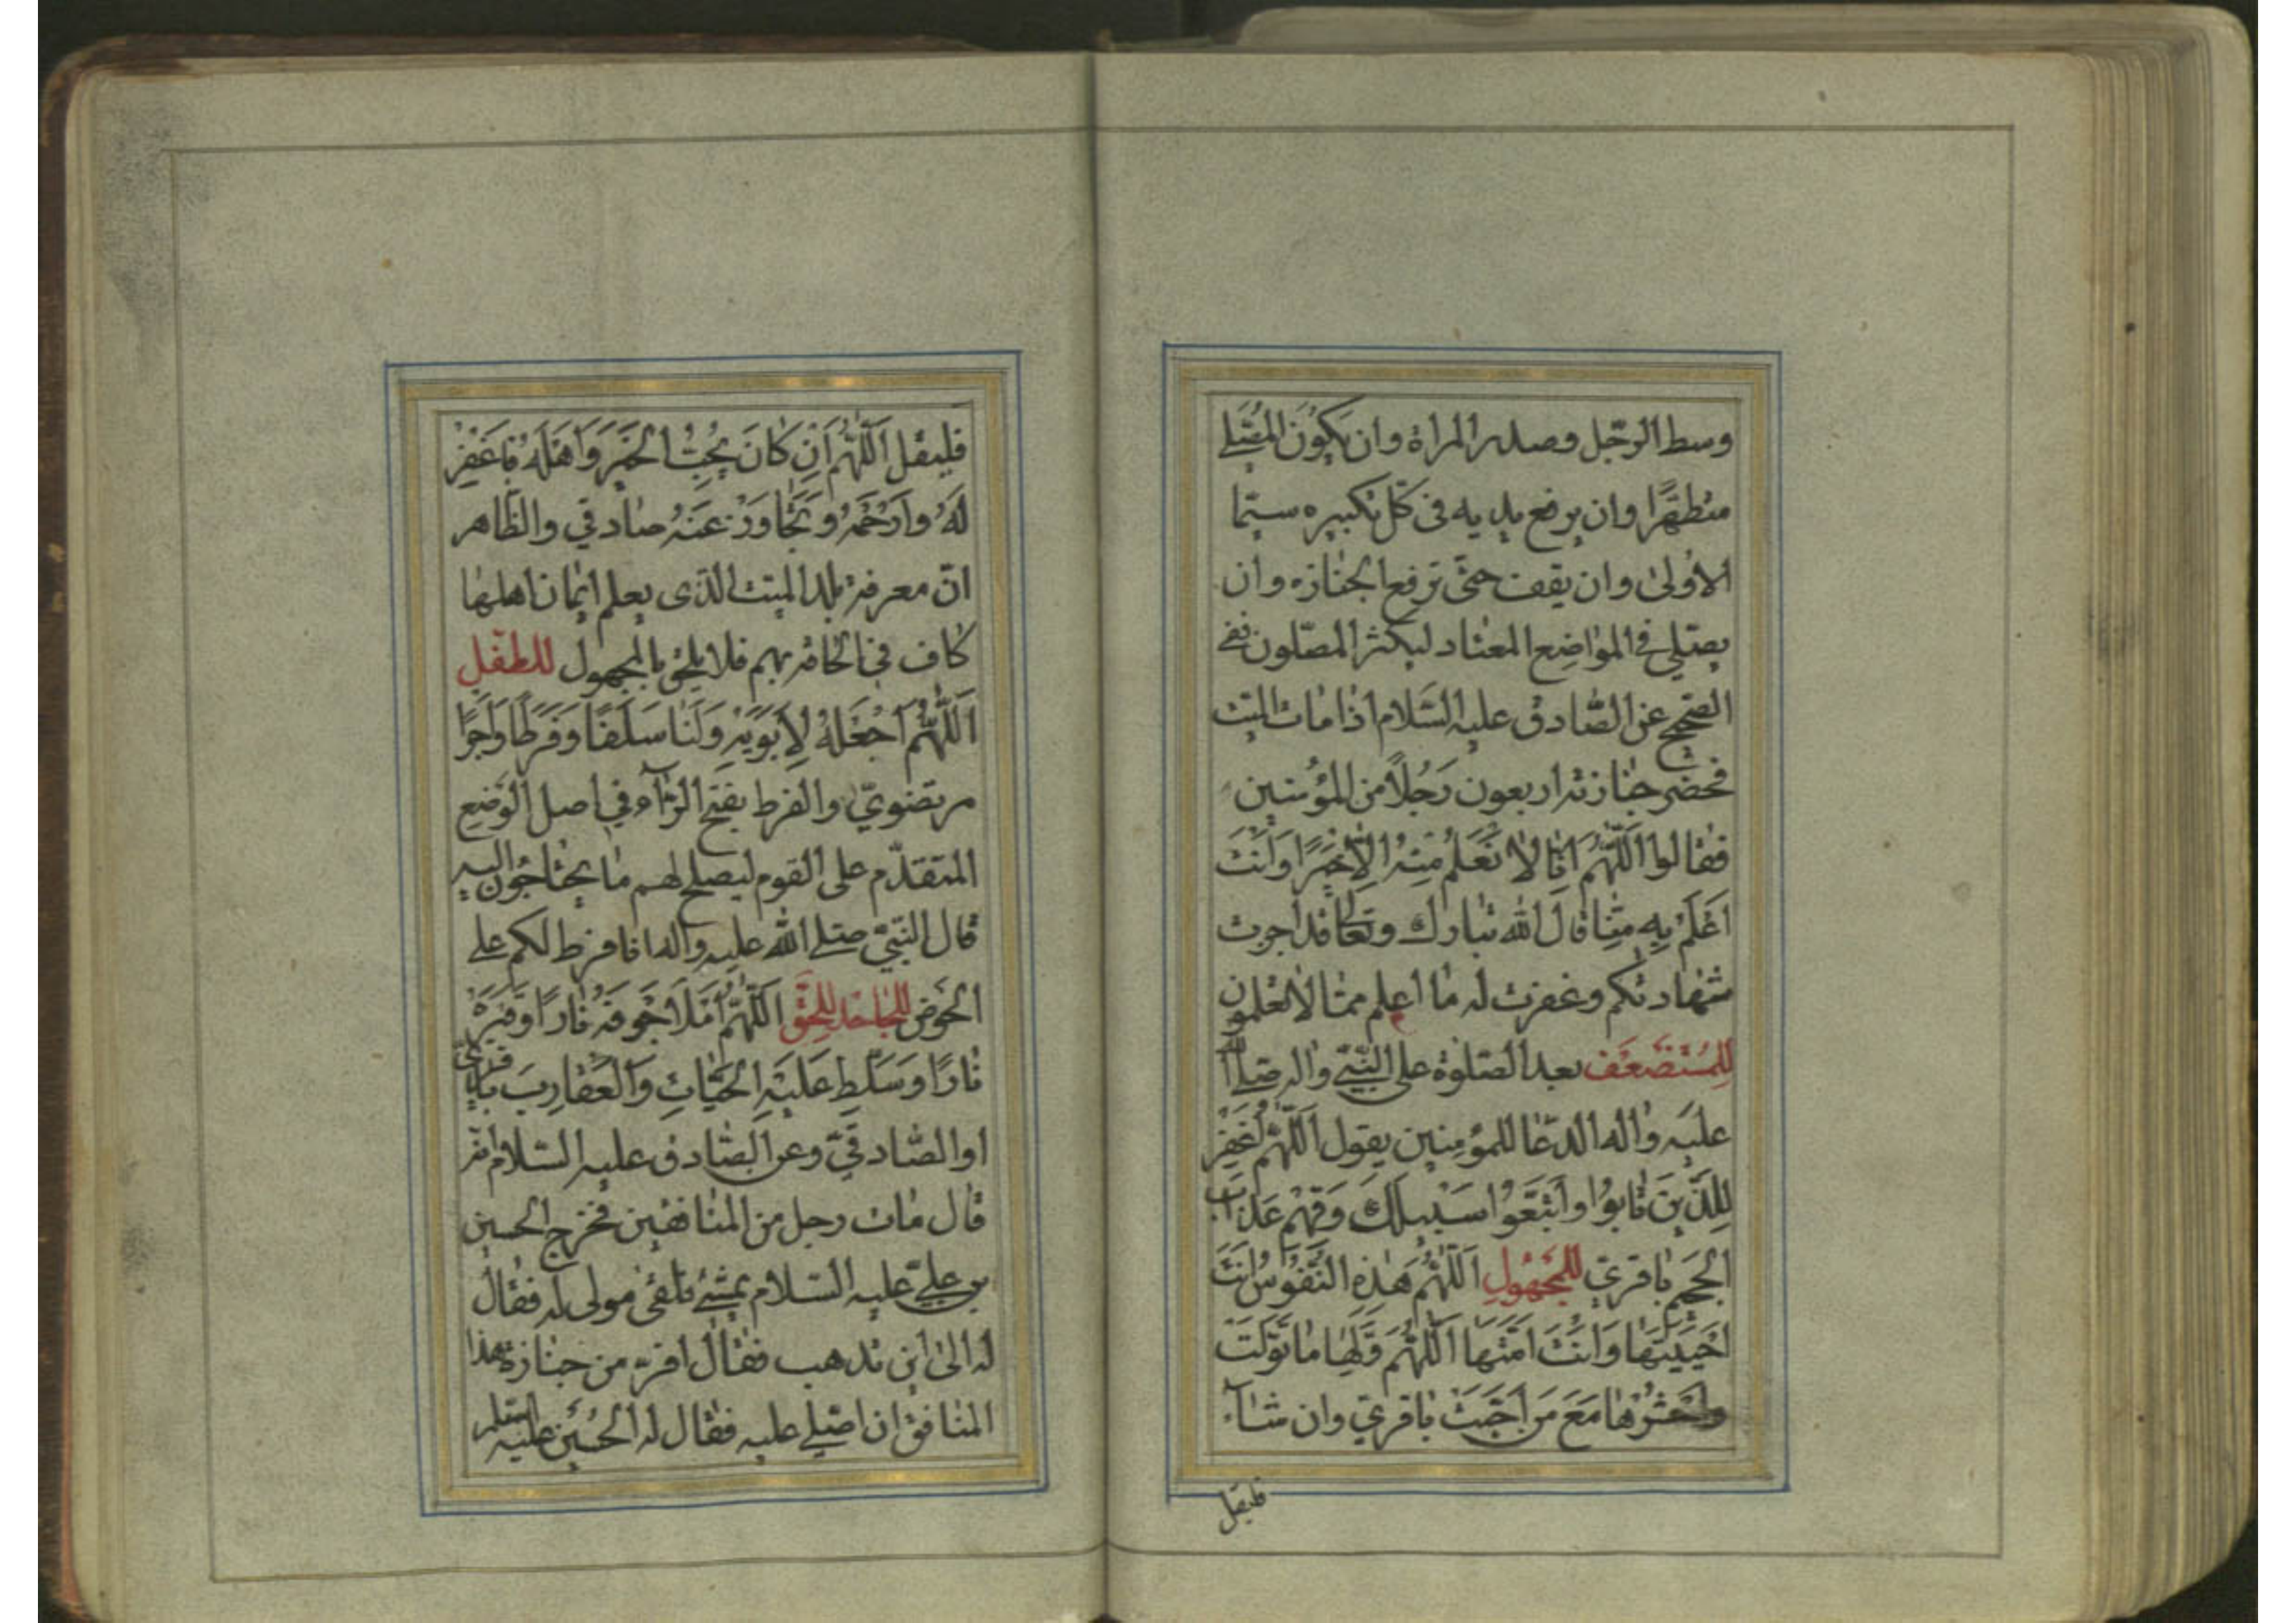 وسط الرجل وصدر المراة وان يكون المصلي
متطهرًا وان يرفع يديه في كلّ تكبيره سيّما
الاُولىٰ وان يقف حتّى ترفع الجنازه وان
يصلّي في المواضع المعتاد ليكثر المصلّون ففي
الصحيح عن الصّادق عليه السّلام اذا مات الميّت
فحضر جنازته اربعون رَجُلًا من المؤمنين
فقالوا اَللّهُمَّ اِنّا لا نَعْلَمُ مِنْهُ اِلّا خَيْرًا وَاَنْتَ
اَعْلَمُ بِهِ مِنّا قال الله تبارك وتعا قد اجرت
شهادتكم وغفرت له ما اعلم ممّا لا تعلمون
لِلْمُسْتَضْعَفِ بعد الصّلوة على النّبيّ واله صلى الله
عليه واله الدّعا للمؤمنين يقول اَللّهُمَّ اغْفِرْ
لِلَّذينَ تابوُا وَاتَّبَعُوا سَبيلَكَ وَقِهِمْ عَذابَ
الجَحيمِ باقريّ لِلمَجْهُولِ اَللّهُمَّ هٰذِهِ النُّفُوسُ اَنْتَ
اَحْيَيْتَها وَاَنْتَ اَمَتَّها اَللّهُمَّ وَلِّها ما تَوَلَّتْ
وَاحْشُرْها مَعَ مَنْ اَحَبَّتْ باقريّ وان شآء
فليقل
فليقل اَللّهُمَّ اِنْ كانَ يُحِبُّ الخَيْرَ وَاَهْلَهُ فَاغْفِرْ
لَهُ وَارْحَمْهُ وَتَجاوَزْ عَنْهُ صادقي والظّاهر
انّ معرفة بلد الميت الذّى يعلم ايمان اهلها
كاف في الحاقه بهم فلا يلحق بالمجهول للطفل
اَللّهُمَّ اجْعَلْهُ لِاَبَوَيْهِ وَلَنا سَلَفًا وَفَرَطًا وَاَجْرًا
مرتضويّ والفرط بفتح الرّآء في اصل الوضع
المتقدّم على القوم ليصلح لهم ما يحتاجون اليه
قال النّبيّ صلى الله عليه واله انا فرطكم على
الحوض للجاحد للحق اَللّهُمَّ امْلَأْ جَوْفَهُ نارًا وَقَبْرَهُ
نارًا وَسَلِّطْ عَلَيْهِ الحَيّاتِ وَالعَقارِبَ باقريّ
او الصّادقيّ وعن الصّادق عليه السّلام انّه
قال مات رجل من المنافقين فخرج الحسين
بن عليّ عليه السّلام يمشي فلقى مولى له فقال
له الى اين تذهب فقال افرّ من جنازة هذا
المنافق ان اصلي عليه فقال له الحُسَين عليه السلم